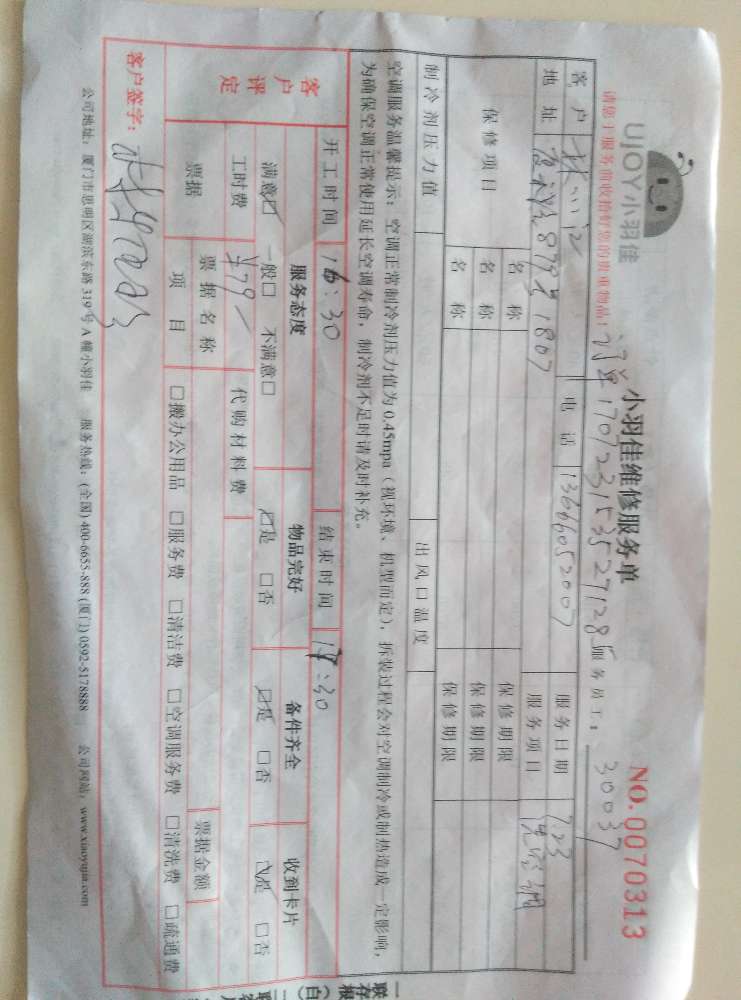 UJOY小羽佳
小羽佳维修服务单
NO.0070313
请您于服务前收拾好您的贵重物品!
订单170723153527128 服务员工: 30037
客户 电话 13666052007 服务日期 7.23
地址 879号1807 服务项目 洗空调
保修项目 名称 保修期限
名称 保修期限
名称 保修期限
制冷剂压力值 出风口温度
空调服务温馨提示:空调正常制冷剂压力值为0.45mpa(视环境、机型而定),拆装过程会对空调制冷或制热造成一定影响,
为确保空调正常使用延长空调寿命,制冷剂不足时请及时补充。
开工时间 16:30 结束时间 17:30
客户评定 服务态度 物品完好 备件齐全 收到卡片
满意☑ 一般□ 不满意□ ☑是 □否 ☑是 □否 ☑是 □否
工时费 ¥79 代购材料费
票据 票据名称 票据金额
项目 □搬办公用品 □服务费 □清洁费 □空调服务费 □清洗费 □疏通费
客户签字:
公司地址:厦门市思明区湖滨东路319号A幢小羽佳 服务热线:(全国)400-6655-888 (厦门)0592-5178888 公司网站:www.xiaoyujia.com